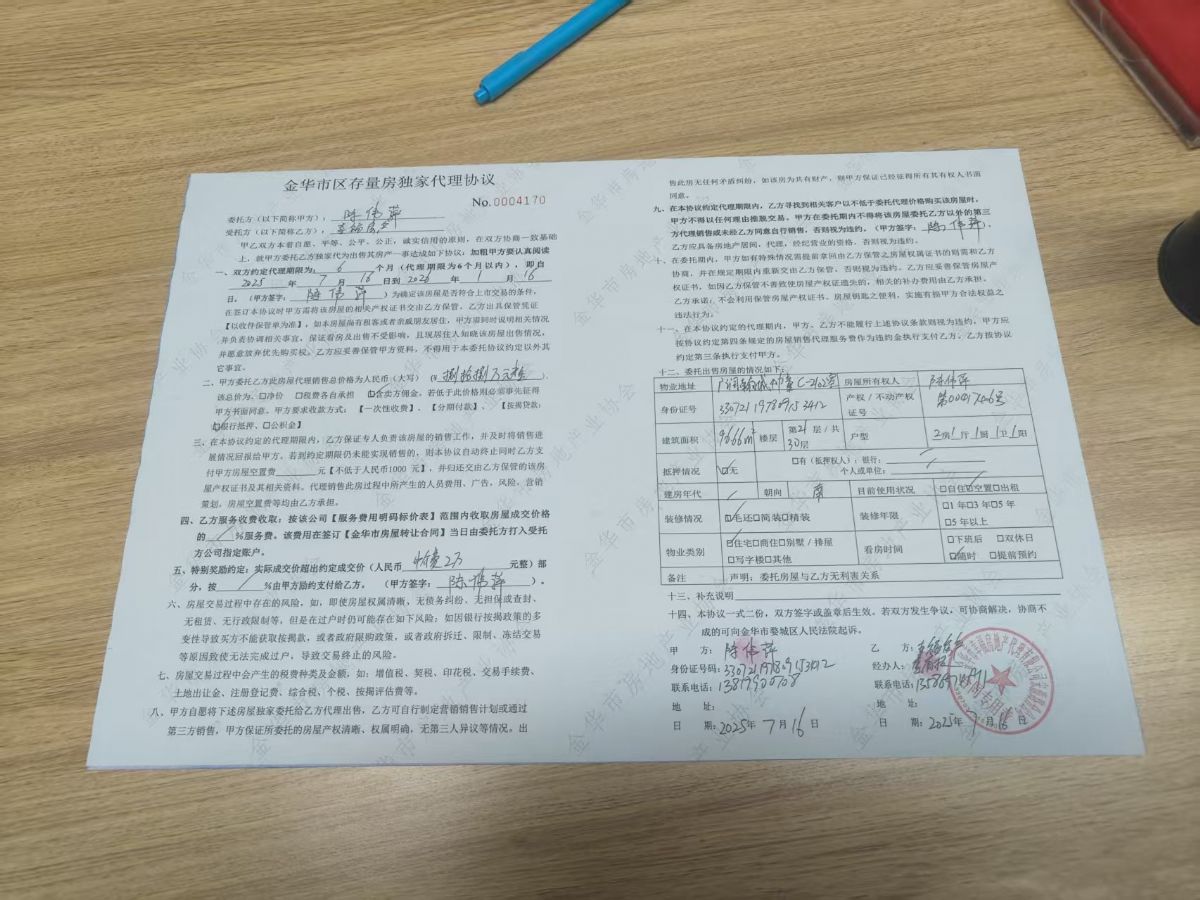 金华市区存量房独家代理协议
No.0004170
委托方(以下简称甲方): 陈伟萍
受托方(以下简称乙方):
甲乙双方本着自愿、平等、公平、公正,诚实信用的原则,在双方协商一致基础
上,就甲方委托乙方独家代为出售其房产一事达成如下协议:加粗甲方要认真阅读
一、双方约定代理期限为: 6 个月(代理期限为6个月以内),即自
2025 年 7 月 16 日到 2026 年 1 月 16
日。(甲方签字: 陈伟萍 )为确定该房屋是否符合上市交易的条件,
在签订本协议时甲方需将该房屋的相关产权证书交由乙方保管。乙方出具保管凭证
【以收件保管单为准】,如本房屋尚有租客或者亲戚朋友居住,甲方需同时说明相关情况
并负责协调相关事宜,保证看房及出售不受影响,且现居住人知晓该房屋出售情况,
并愿意放弃优先购买权。乙方应妥善保管甲方资料,不得用于本委托协议约定以外其
它事宜。
二、甲方委托乙方此房屋代理销售总价格为人民币(大写) 捌拾捌万元整)
该总价为、□净价 □税费各自承担 ☑含卖方佣金,若低于此价格则必须事先征得
甲方书面同意。甲方要求收款方式: 【一次性收费】、【分期付款】、【按揭贷款:
☑银行抵押、□公积金】
三、在本协议约定的代理期限内,乙方保证专人负责该房屋的销售工作,并及时将销售进
展情况回报给甲方。若到约定期限仍未能实现销售的,则本协议自动终止同时乙方支
付甲方房屋空置费 元【不低于人民币1000 元】,并归还交由乙方保管的该房
屋产权证书及其相关资料。代理销售此房过程中所产生的人员费用、广告、风险、营销
策划、房屋空置费等均由乙方承担。
四、乙方服务收费收取:按该公司【服务费用明码标价表】范围内收取房屋成交价格
的 / %服务费。该费用在签订【金华市房屋转让合同】当日由委托方打入受托
方公司指定账户。
五、特别奖励约定:实际成交价超出约定成交价(人民币 收费2万 元整)部
分,按 / %由甲方励约支付给乙方。 (甲方签字: 陈伟萍 )。
六、房屋交易过程中存在的风险,如,即使房屋权属清晰,无债务纠纷、无担保或查封、
无租赁、无行政限制等,但是在过户时仍可能存在如下风险:如因银行按揭政策的多
变性导致买方不能获取按揭款,或者政府限购政策,或者政府拆迁、限制、冻结交易
等原因致使无法完成过户,导致交易终止的风险。
七、房屋交易过程中会产生的税费种类及金额,如:增值税、契税、印花税、交易手续费、
土地出让金、注册登记费、综合税、个税、按揭评估费等。
八、甲方自愿将下述房屋独家委托给乙方代理出售,乙方可自行制定营销销售计划或通过
第三方销售,甲方保证所委托的房屋产权清晰、权属明确,无第三人异议等情况。出
售此房无任何矛盾纠纷,如该房为共有财产,则甲方保证已经征得所有其有权人书面
同意。
九、在本协议约定代理期限内,乙方寻找到相关客户以不低于委托代理价格购买该房屋时,
甲方不得以任何理由推脱交易。甲方在委托期内不得将该房屋委托乙方以外的第三
方代理销售或未经乙方同意自行销售,否则视为违约。(甲方签字: 陈伟萍 )。
乙方应具备房地产居间、代理、经纪营业的资格,否则视为违约。
十、在委托期内,甲方如有特殊情况需提前拿回由乙方保管之房屋权属证书的则需和乙方
协商,并在规定期限内重新交由乙方保管、否则视为违约。乙方应妥善保管房屋产
权证书,如因乙方保管不善致使房屋产权证遗失的,相关的补办费用由乙方承担。
乙方承诺:不会利用保管房屋产权证书、房屋钥匙之便利,实施有损甲方合法权益之
违法行为。
十一、在本协议约定的代理期内,甲方、乙方不能履行上述协议条款则视为违约。甲方应
按协议约定第四条规定的房屋销售代理服务费作为违约金执行支付乙方。乙方按协议
约定第三条执行支付甲方。
十二、委托出售房屋的情况如下:
物业地址 C-2102室 房屋所有权人 陈伟萍
身份证号 330721197809153412 产权/不动产权证号 第00417406号
建筑面积 96.66㎡ 楼层 第21层/共30层 户型 2房1厅1厨1卫1阳
抵押情况 ☑无 □有(抵押权人):银行: / 个人或单位: /
建房年代 / 朝向 南 目前使用状况 □自住☑空置□出租
装修情况 ☑毛坯□简装□精装 装修年限 □1年□3年□5年 □5年以上
物业类别 ☑住宅□商住□别墅/排屋 □写字楼□其他 看房时间 □下班后 □双休日 ☑随时 □提前预约
备注 声明:委托房屋与乙方无利害关系
十三、补充说明
十四、本协议一式二份,双方签字或盖章后生效。若双方发生争议,可协商解决,协商不
成的可向金华市婺城区人民法院起诉。
甲 方: 陈伟萍 乙 方:
身份证号码:330721197809153412 经办人:
联系电话: 联系电话:
地 址: 地 址:
日 期: 2025年 7月16日 日 期: 2025年 7月16日